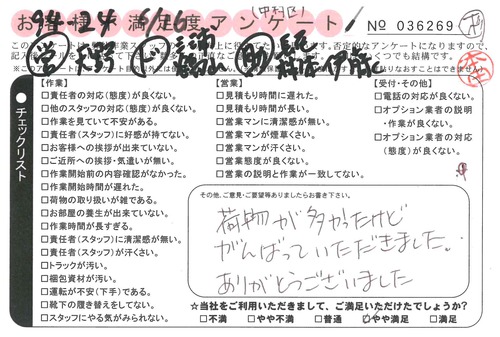 お客様満足度アンケート
(中村区)
No 036269
94-24 6/26
営 大野
助
【作業】
□責任者の対応(態度)が良くない。
□他のスタッフの対応(態度)が良くない。
□作業を見ていて不安がある。
□責任者(スタッフ)に好感が持てない。
□お客様への挨拶が出来ていない。
□ご近所への挨拶・気遣いが無い。
□作業開始前の内容確認がなかった。
□作業開始時間が遅れた。
□荷物の取り扱いが雑である。
□お部屋の養生が出来ていない。
□作業時間が長すぎる。
□責任者(スタッフ)に清潔感が無い。
□責任者(スタッフ)が汗くさい。
□トラックが汚い。
□梱包資材が汚い。
□運転が不安(下手)である。
□靴下の履き替えをしてない。
□スタッフにやる気がみられない。
【営業】
□見積もり時間に遅れた。
□見積もり時間が長い。
□営業マンに清潔感が無い。
□営業マンが煙草くさい。
□営業マンが汗くさい。
□営業態度が良くない。
□営業の説明と作業が一致してない。
【受付・その他】
□電話の対応が良くない。
□オプション業者の説明
・作業が良くない。
□オプション業者の対応
(態度)が良くない。
チェックリスト
その他、ご意見・ご要望等ありましたらお書き下さい。
荷物が多かったけど
がんばっていただきました。
ありがとうございました
☆当社をご利用いただきまして、ご満足いただけたでしょうか?
□不満 □やや不満 □普通 □やや満足 □満足